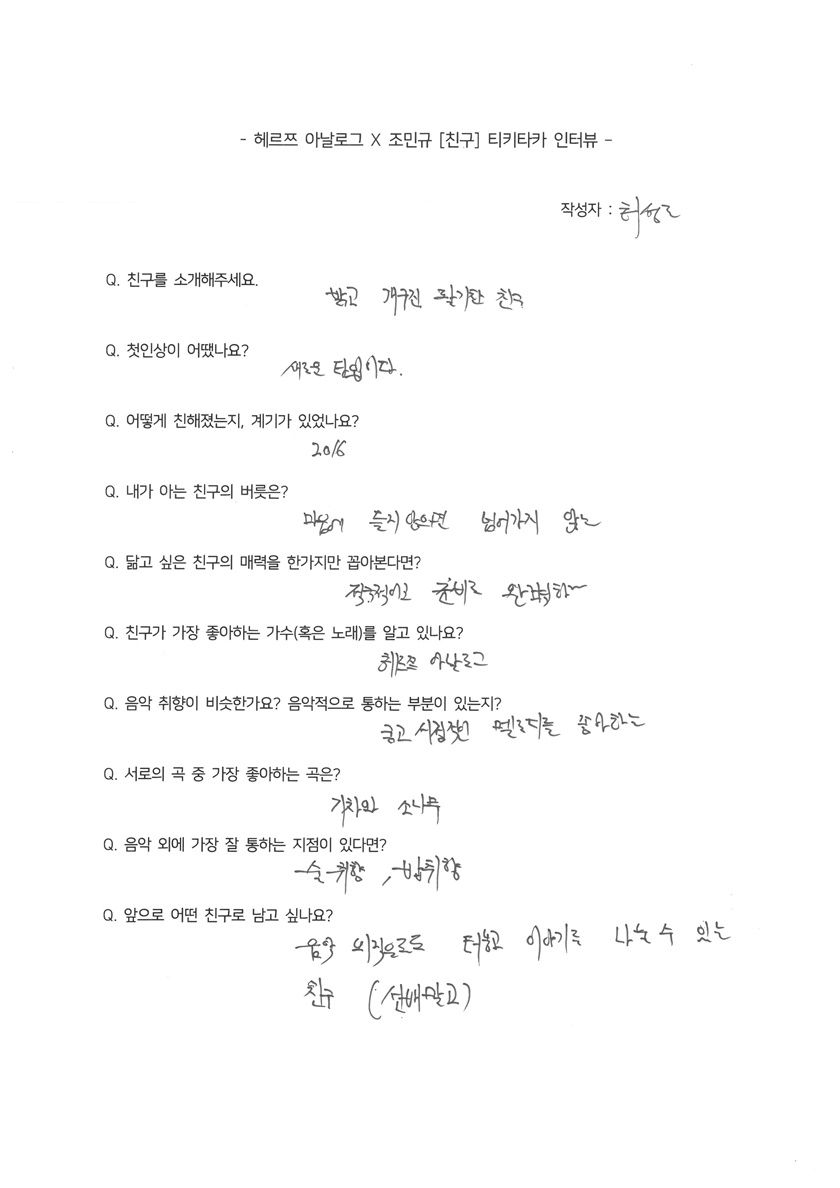 - 헤르쯔 아날로그 X 조민규 [친구] 티키타카 인터뷰 -
작성자 : 허성근
Q. 친구를 소개해주세요.
밝고 개구진 활기찬 친구
Q. 첫인상이 어땠나요?
새로운 타입이다.
Q. 어떻게 친해졌는지, 계기가 있었나요?
2016
Q. 내가 아는 친구의 버릇은?
마음에 들지 않으면 넘어가지 않는
Q. 닮고 싶은 친구의 매력을 한가지만 꼽아본다면?
적극적이고 준비로
Q. 친구가 가장 좋아하는 가수(혹은 노래)를 알고 있나요?
헤르쯔 아날로그
Q. 음악 취향이 비슷한가요? 음악적으로 통하는 부분이 있는지?
멜로디를 좋아하는
Q. 서로의 곡 중 가장 좋아하는 곡은?
기차와 소나무
Q. 음악 외에 가장 잘 통하는 지점이 있다면?
술취향, 밥취향
Q. 앞으로 어떤 친구로 남고 싶나요?
음악 외적으로도 터놓고 이야기를 나눌 수 있는
친구 (선배말고)